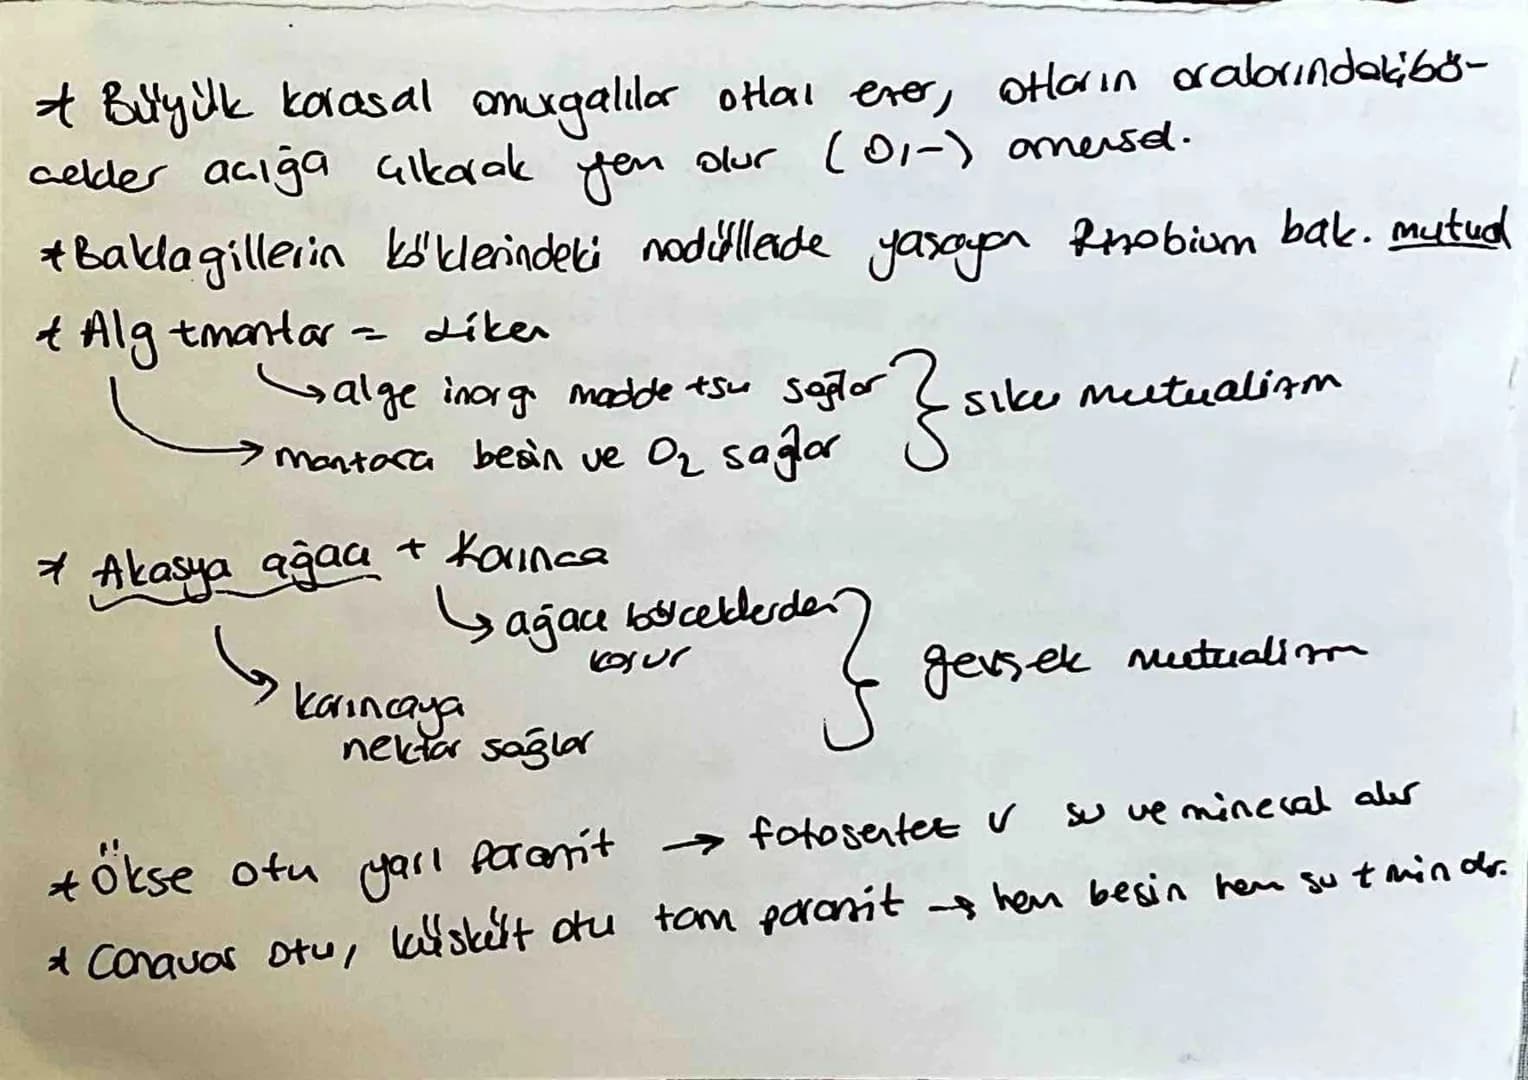 * Büyük karasal omurgalılar otları ezer, otların aralarındaki bö-
cekler açığa çıkarak yem olur (0,-) amensal.
* Baklagillerin köklerindeki nodüllerde yaşayan Rhizobium bak. mutual
* Alg + mantar = Liken
→ alge inorg. madde + su sağlar
→ mantara besin ve O₂ sağlar
} sıkı mutualizm
* Akasya ağacı + Karınca
→ ağacı böceklerden
korur
→ karıncaya
nektar sağlar
} gevşek mutualizm
* Ökse otu yarı parazit → fotosentez √ su ve mineral alır
* Canavar otu, küsküt otu tam parazit → hem besin hem su + min alr.